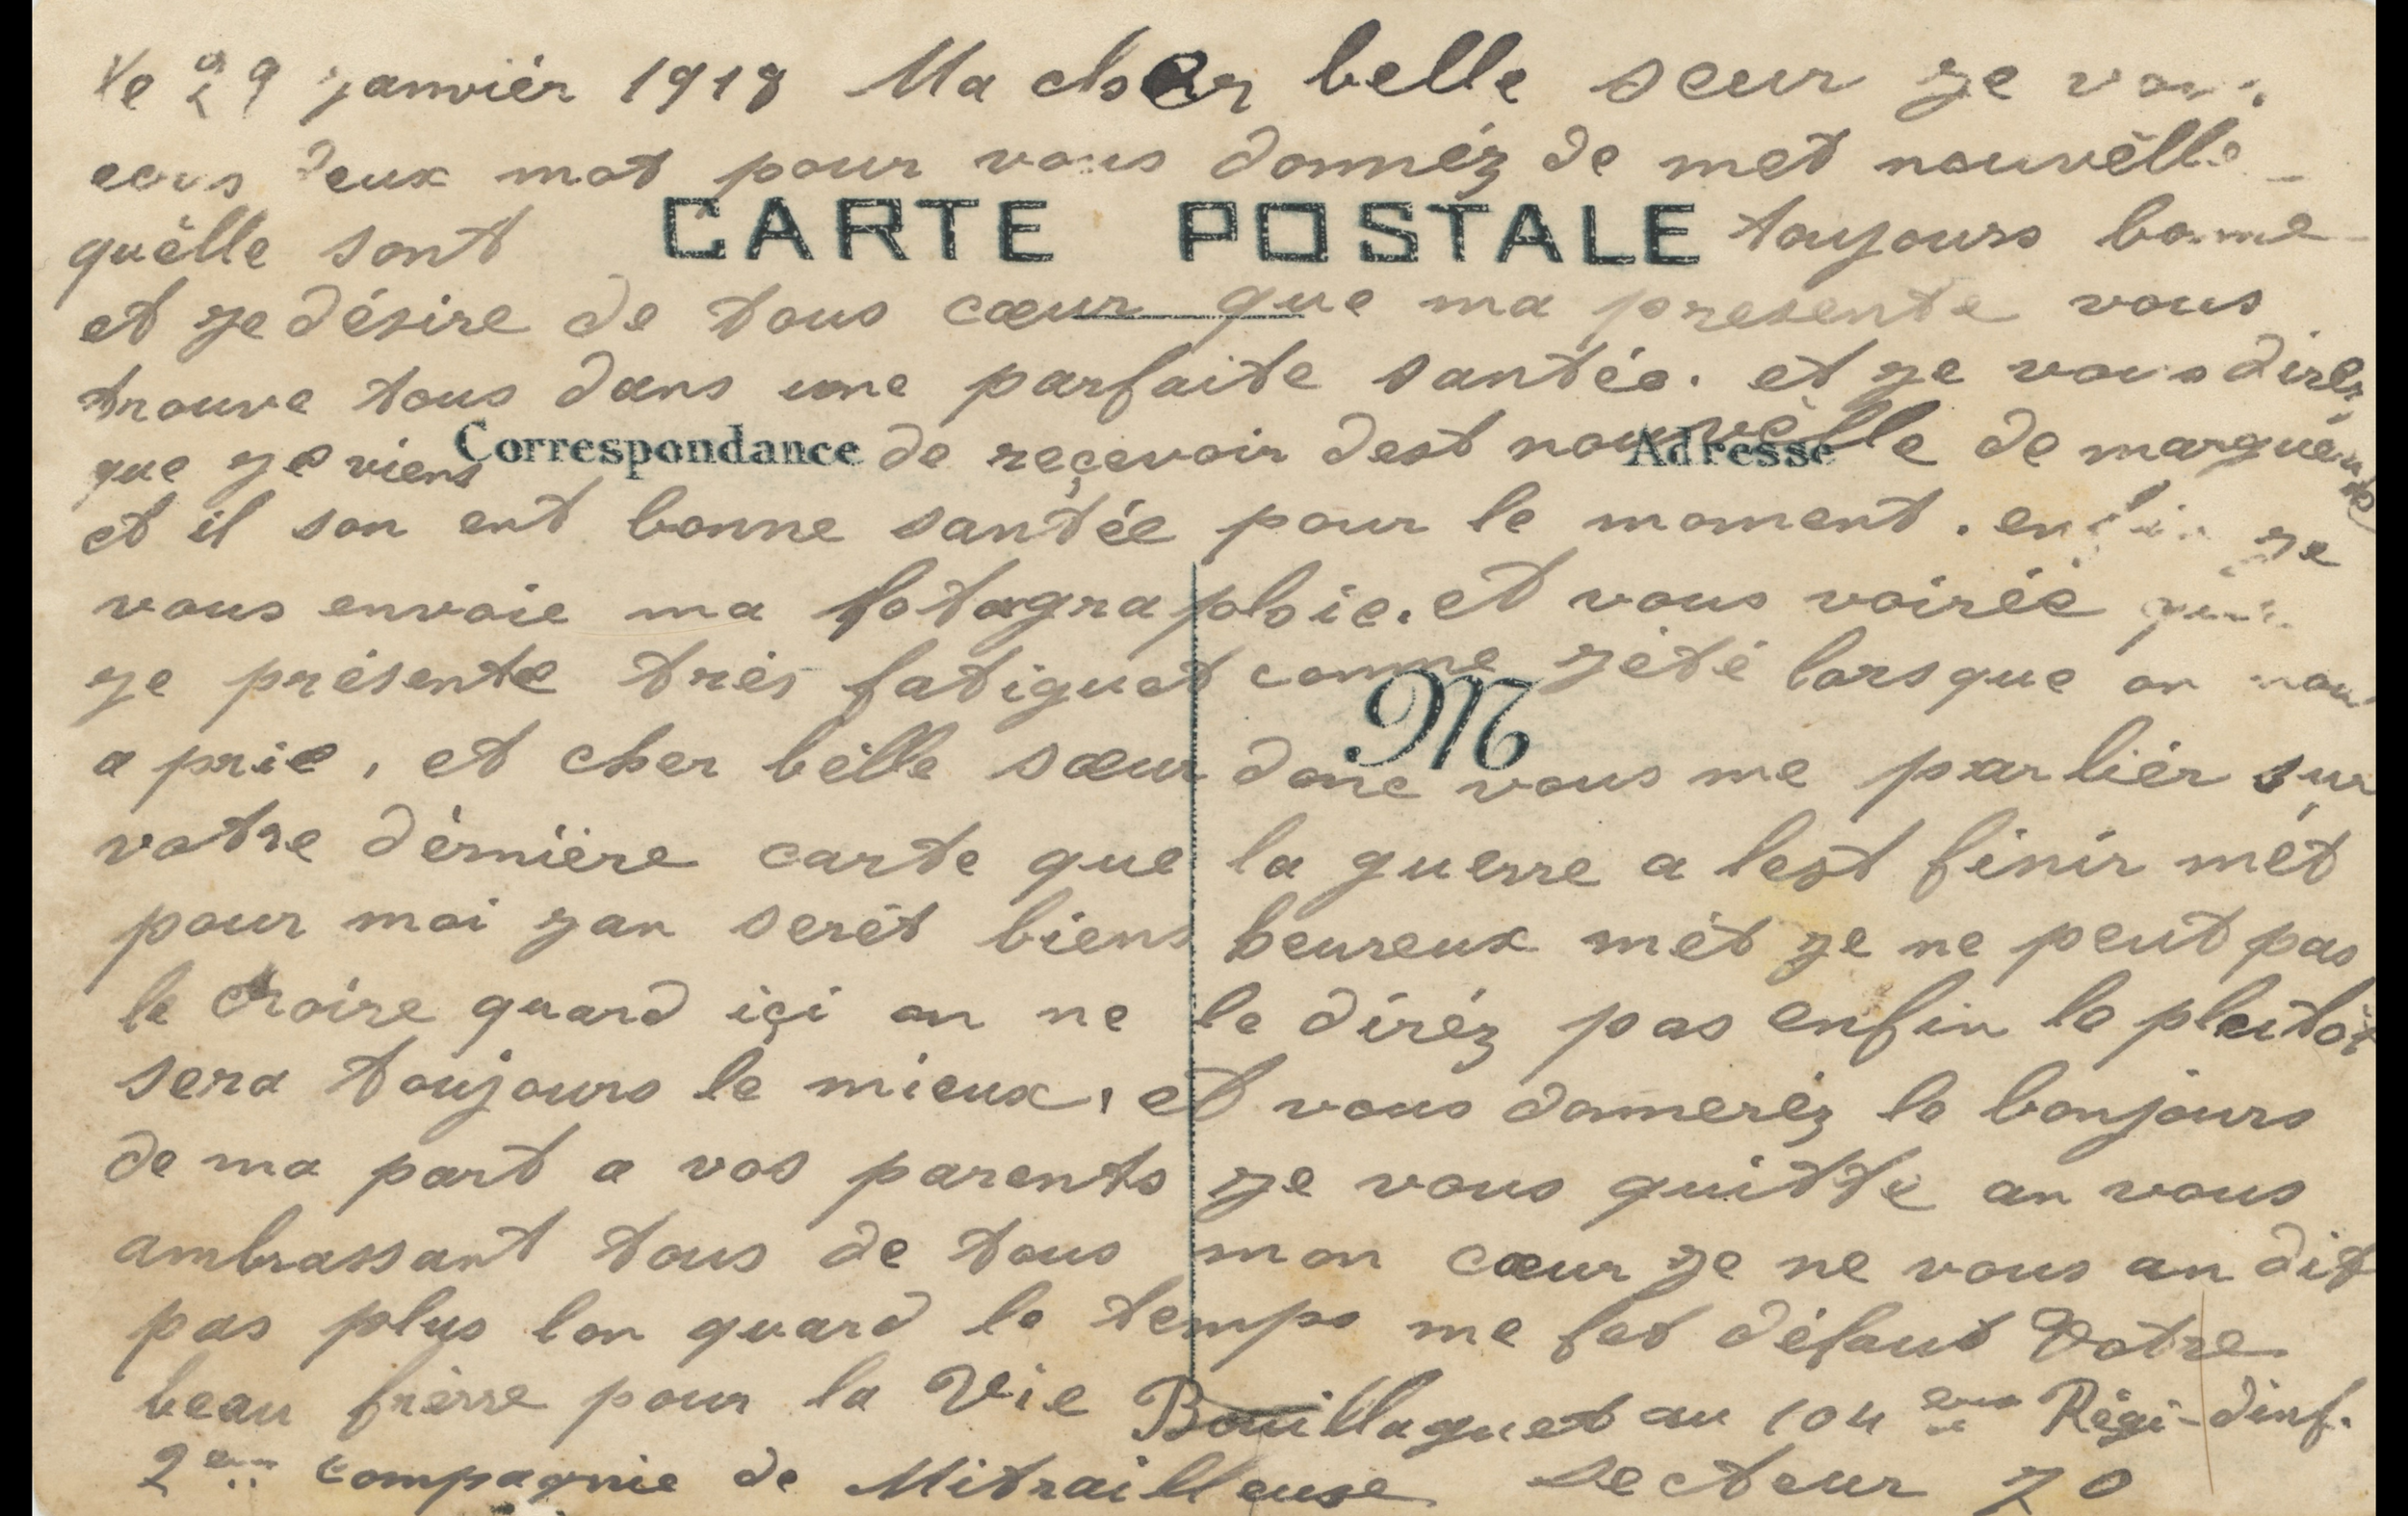 le 29 janvièr 1918 Ma cher belle seur je vous
ecris deux mot pour vous donnéz de met nouvèlle
quèlle sont toujours bonne
CARTE POSTALE
et je désire de tous cœur que ma presente vous
trouve tous dans une parfaite santée. et je vous diréz
que je viens de reçevoir dest nouvèlle de marguerite
Correspondance Adresse
et il son ent bonne santée pour le moment. enfin je
vous envoie ma fotagraphie. et vous voirée que
je présente très fatiguet comme jété lorsque on nou
M
a prie, et cher bèlle sœur donc vous me parlièr sur
votre dérnière carte que la guerre a lest finir mèt
pour moi jan serèt biens heureux mèt je ne peut pas
le croire quand içi on ne le diréz pas enfin le plutôt
sera toujours le mieux, et vous donneréz le bonjours
de ma part a vos parents je vous quitte an vous
ambrassant tous de tous mon cœur je ne vous an dit
pas plus lon quand le temps me fet défaut Votre
beau frèrre pour la Vie Bouillaguet au 104 eme Régi-dinf.
2eme compagnie de Mitrailleuse Secteur 70